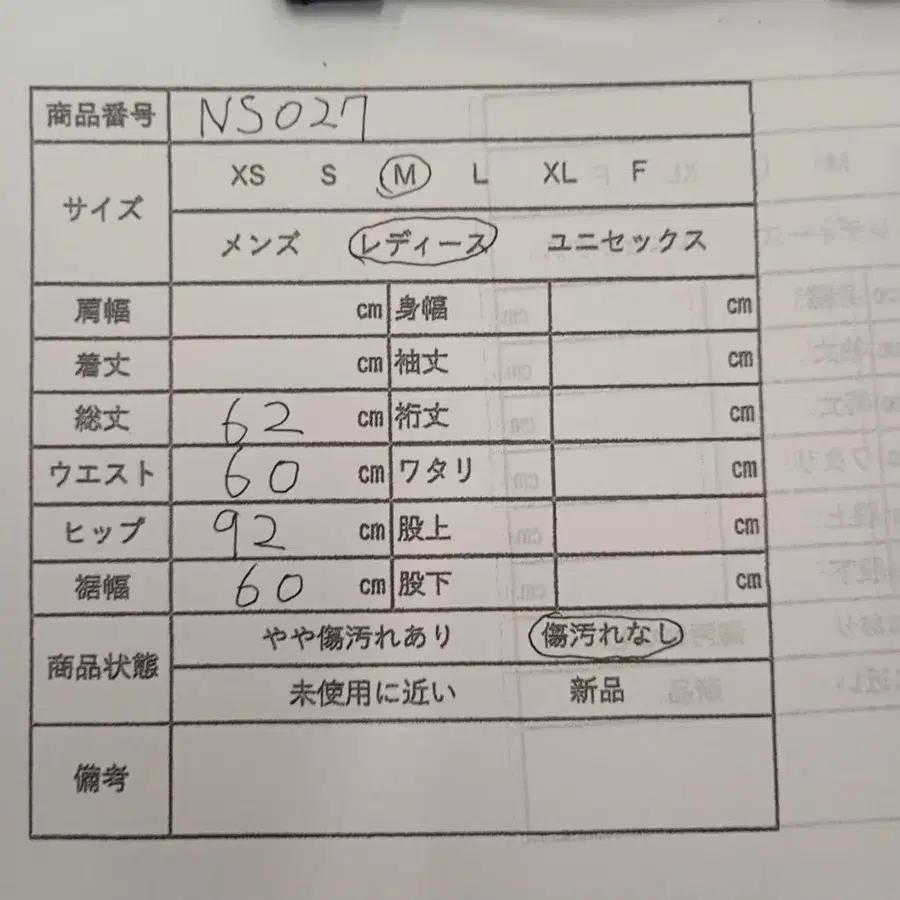 商品番号 NS027
サイズ
XS S M L XL F
メンズ レディース ユニセックス
肩幅 cm 身幅 cm
着丈 cm 袖丈 cm
総丈 62 cm 裄丈 cm
ウエスト 60 cm ワタリ cm
ヒップ 92 cm 股上 cm
裾幅 60 cm 股下 cm
商品状態
やや傷汚れあり 傷汚れなし
未使用に近い 新品
備考